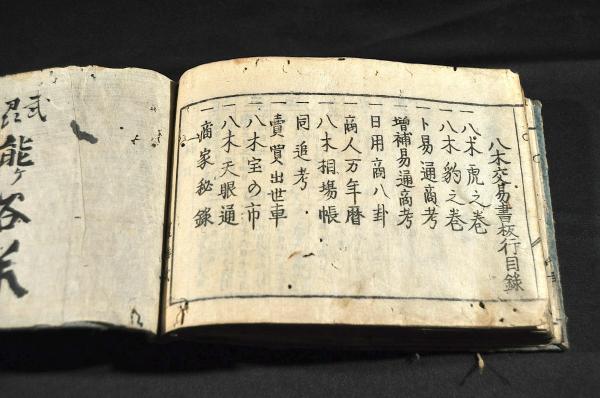 八木交易書板行目録
一八木虎之巻
一八木豹之巻
一卜易通商考
一増補易通商考
一日用商八卦
一商人万年暦
一八木相場帳
一同追考
一賣買出世車
一八木宝の市
一八木天眼通
一商家秘録
武
熊ヶ谷